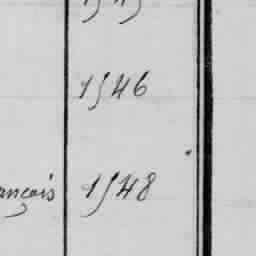 1546
ançais 1548